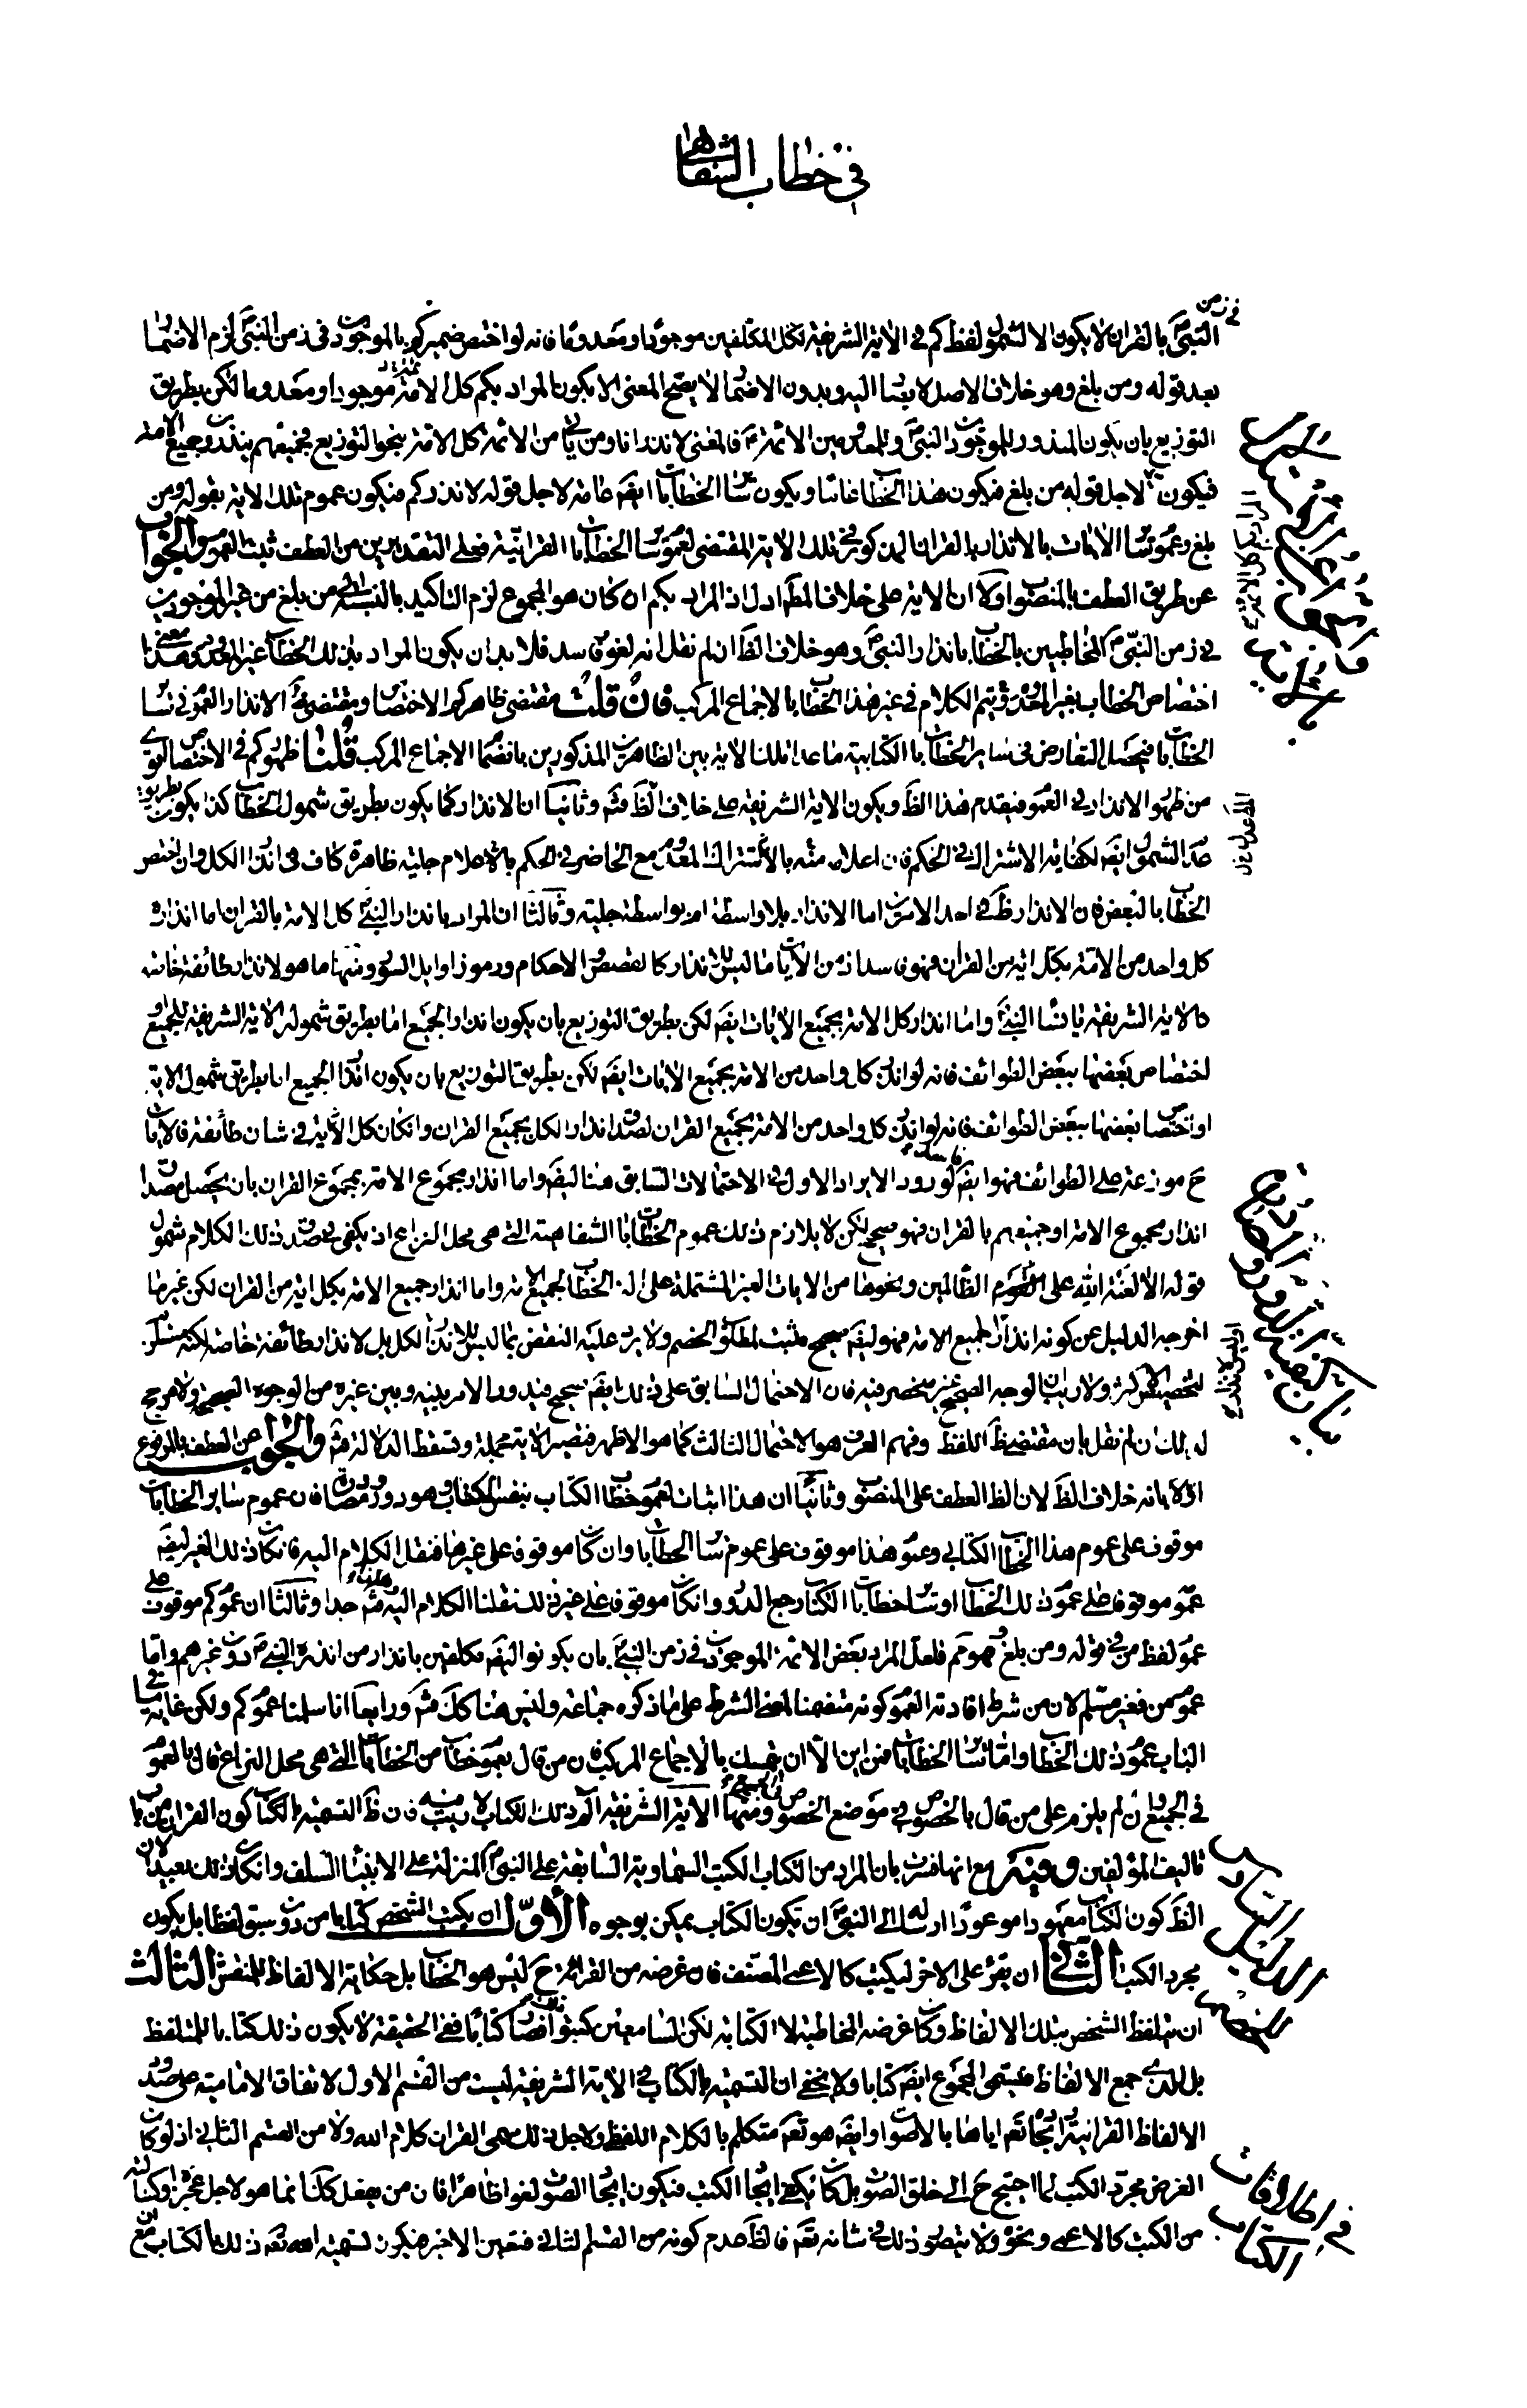 في خطاب المشافهة
النبي ص بالقران لا يكون الا لشمول لفظ كم في الاية الشريفة لكل المكلفين موجودا و معدوما فانه لو اختص ضمير كم بالموجودين في زمن النبي ص لزم الاضمار
بعد قوله و من بلغ و هو خلاف الاصل لا يصار اليه و بدون الاضمار لا يصح المعنى الا بكون المراد بكم كل الامة موجودا و معدوما لكن بطريق
التوزيع بان يكون المنذر للموجودين النبي ص و للمعدومين الائمة ع فالمعنى لانذر انا و من بلغ من الائمة كل الامة بنحو التوزيع فجميعهم ينذرون جميع الامة
فيكون لاجل قوله من بلغ فيكون هذا الخطاب عاما و يكون سائر الخطابات ايضا عامة لاجل قوله لانذركم فيكون عموم تلك الاية بقوله و من
بلغ و عموم سائر الايات بالانذار بالقران المذكور في تلك الاية المقتضى لعموم سائر الخطابات القرانية فعلى التقديرين من العطف ثبت العموم و الجواب
عن طريق العطف بالمنصوب اولا ان الاية على خلاف المط ادل اذ المراد بكم ان كان هو المجموع لزم التاكيد بالنسبة الى من بلغ من غير الموجودين
في زمن النبي ص المخاطبين بالخطاب بانذار النبي ص و هو خلاف الظ ان لم نقل انه لغو فاسد فلا بد ان يكون المراد بذلك الخطاب غير المعدومين و معنى هذا
اختصاص الخطاب بغير المعدومين و يتم الكلام في غير هذا الخطاب بالاجماع المركب فان قلت مقتضى ظاهر كم الاختصاص و مقتضى الانذار العموم في سائر
الخطابات فيحصل التعارض في سائر الخطابات الكتابية ما عدا تلك الاية بين الظاهرين المذكورين بانضمام الاجماع المركب قلنا ظهور كم في الاختصاص اقوى
من ظهور الانذار في العموم فيقدم هذا الظ و يكون الاية الشريفة على خلاف الظ فتم و ثانيا ان الانذار كما يكون بطريق شمول الخطاب كذا يكون بطريق
عدم الشمول ايض لكفاية الاشتراك في الحكم فان اعلامه بالاشتراك المعدوم مع الحاضر في الحكم بالاعلام جلية ظاهرة كاف في انذار الكل و ان اختص
الخطاب بالبعض فان الانذار ظ في احد الامرين اما الانذار بلا واسطة او بواسطة جلية و ثالثا ان المراد بانذار النبي ص كل الامة بالقران اما انذار
كل واحد من الامة بكل اية من القران فهو فاسد اذ من الايات ما ليس للانذار كالقصص و الاحكام و رموز اوايل السور و منها ما هو لانذار طائفة خاصة
كالاية الشريفة يا نساء النبي ص و اما انذار كل الامة بجميع الايات ايض لكن بطريق التوزيع بان يكون انذار الجميع اما بطريق شمول الاية الشريفة للجميع او
لاختصاص بعضها ببعض الطوائف فانه لو انذر كل واحد من الامة بجميع الايات ايض لكن بطريق التوزيع بان يكون انذار الجميع اما بطريق شمول الاية
او اختصاص بعضها ببعض الطوائف فانه لو انذر كل واحد من الامة بجميع القران لصدق انذار الكل بجميع القران و ان كان كل اية في شان طائفة فالايات
ح موزعة على الطوائف فهو ايض فاسد لورود الايراد الاول في الاحتمالات السابق هنا ايض و اما انذار مجموع الامة بمجموع القران بان يحصل مصداق
انذار مجموع الامة او جميعهم بالقران فهو صحيح لكن لا يلازم ذلك عموم الخطابات الشفاهية التي هي محل النزاع اذ يكفي في صدق ذلك الكلام شمول
قوله الا لعنة الله على القوم الظالمين و نحوها من الايات الغير المشتملة على الة الخطاب لجميع الامة و اما انذار جميع الامة بكل اية من القران لكن غيرها
اخرجه الدليل عن كونه انذارا لجميع الامة فهو ايض صحيح مثبت لمطلوب الخصم و لا يرد عليه النقض بما ليس لانذار الكل بل لانذار طائفة خاصة لكنه مستلزم
لتخصيص الاكثر و لا ريب ان الوجه الصحيح غير منحصر فيه فان الاحتمال السابق على ذلك ايض صحيح فيدور الامر بينه و بين غيره من الوجوه الصحيحة و لا مرجح
له بذلك ان لم نقل بان مقتضى ظ اللفظ و فهم العرف هو الاحتمال الثالث كما هو الاظهر فتصير الاية مجملة و تسقط الدلالة فتم و الجواب عن العطف بالمرفوع
اولا بانه خلاف الظ لان الظ العطف على المنصوب و ثانيا ان هذا اثبات لعموم خطاب الكتاب بنفس الكتاب و هو دور و مصادرة فان عموم سائر الخطابات
موقوف على عموم هذا الخطاب الكتابي و عموم هذا موقوف على عموم سائر الخطابات و ان كان موقوف على غيرها فننقل الكلام اليه فان كان ذلك الغير ايض
عمومه موقوف على عموم ذلك الخطاب او سائر خطابات الكتاب رجع الدور و ان كان موقوف على غير ذلك نقلنا الكلام اليه فتم جدا و ثالثا ان عموم كم موقوف على
عموم لفظ من في قوله و من بلغ و هو مم فلعل المراد بعض الائمة الموجودين في زمن النبي ص بان يكونوا ايض مكلفين بانذار من انذره النبي ص دون غيرهم و اما
عموم من فغير مسلم لان من شرط افادته العموم كونه متضمنا لمعنى الشرط على ما ذكره جماعة و ليس هنا كك فتم و رابعا انا سلمنا عموم كم و لكن غاية ما في
الباب عموم ذلك الخطاب و اما سائر الخطابات فمن اين الا ان يتمسك بالاجماع المركب فان من قال بعموم خطاب من الخطابات التي هي محل النزاع قال بالعموم
في الجميع و ان لم يلزم على من قال بالخصوص في موضع الخصوص في الجميع و منها الاية الشريفة الم ذلك الكتاب لا ريب فيه فان ظ التسمية بالكتاب كون القران من باب
تاليف المؤلفين و فيه مع انها فسرت بان المراد من الكتاب الكتب السماوية السابقة على النبي ص المنزلة على الانبياء السلف و ان كان ذلك بعيدا لان
الظ كون الكتاب معهودا موعودا ارساله الى النبي ص ان تكون الكتاب يمكن بوجوه الاول ان يكتب الشخص كتابا من دون سبق لفظ بل يكون
مجرد الكتب الثاني ان يقرء على الاخر ليكتب كالاعمى المصنف فان غرضه من القرائة ح ليس هو الخطاب بل حكاية الالفاظ للنقش الثالث
ان يتلفظ الشخص بتلك الالفاظ و كان غرضه المخاطبة لا الكتابة لكن السامعين كتبوه فصار كتابا ففي الحقيقة لا يكون ذلك كتابا للمتلفظ
بل للذي جمع الالفاظ فيسمى المجموع ايض كتابا و لا يخفى ان التسمية بالكتاب في الاية الشريفة ليست من القسم الاول لاتفاق الامامية على صدور
الالفاظ القرانية و ايجاده تعم اياها بالاصوات و ايض هو تعم متكلم بالكلام اللفظي و لاجل ذلك سمى القران كلام الله و لا من القسم الثاني اذ لو كان
الغرض مجرد الكتب لما احتيج ح الى خلق الصوت بل كان يكفي ايجاد الكتب فيكون ايجاد الصوت لغوا ظاهرا فان من يفعل كك انما هو لاجل عجزه
من الكتب كالاعمى و نحوه و لا يتصور ذلك في شانه تعم فالظ عدم كونه من القسم الثاني فتعين الاخر فيكون تسميته الله تعم ذلك بالكتاب مع ان
في اطلاقات
الكتاب